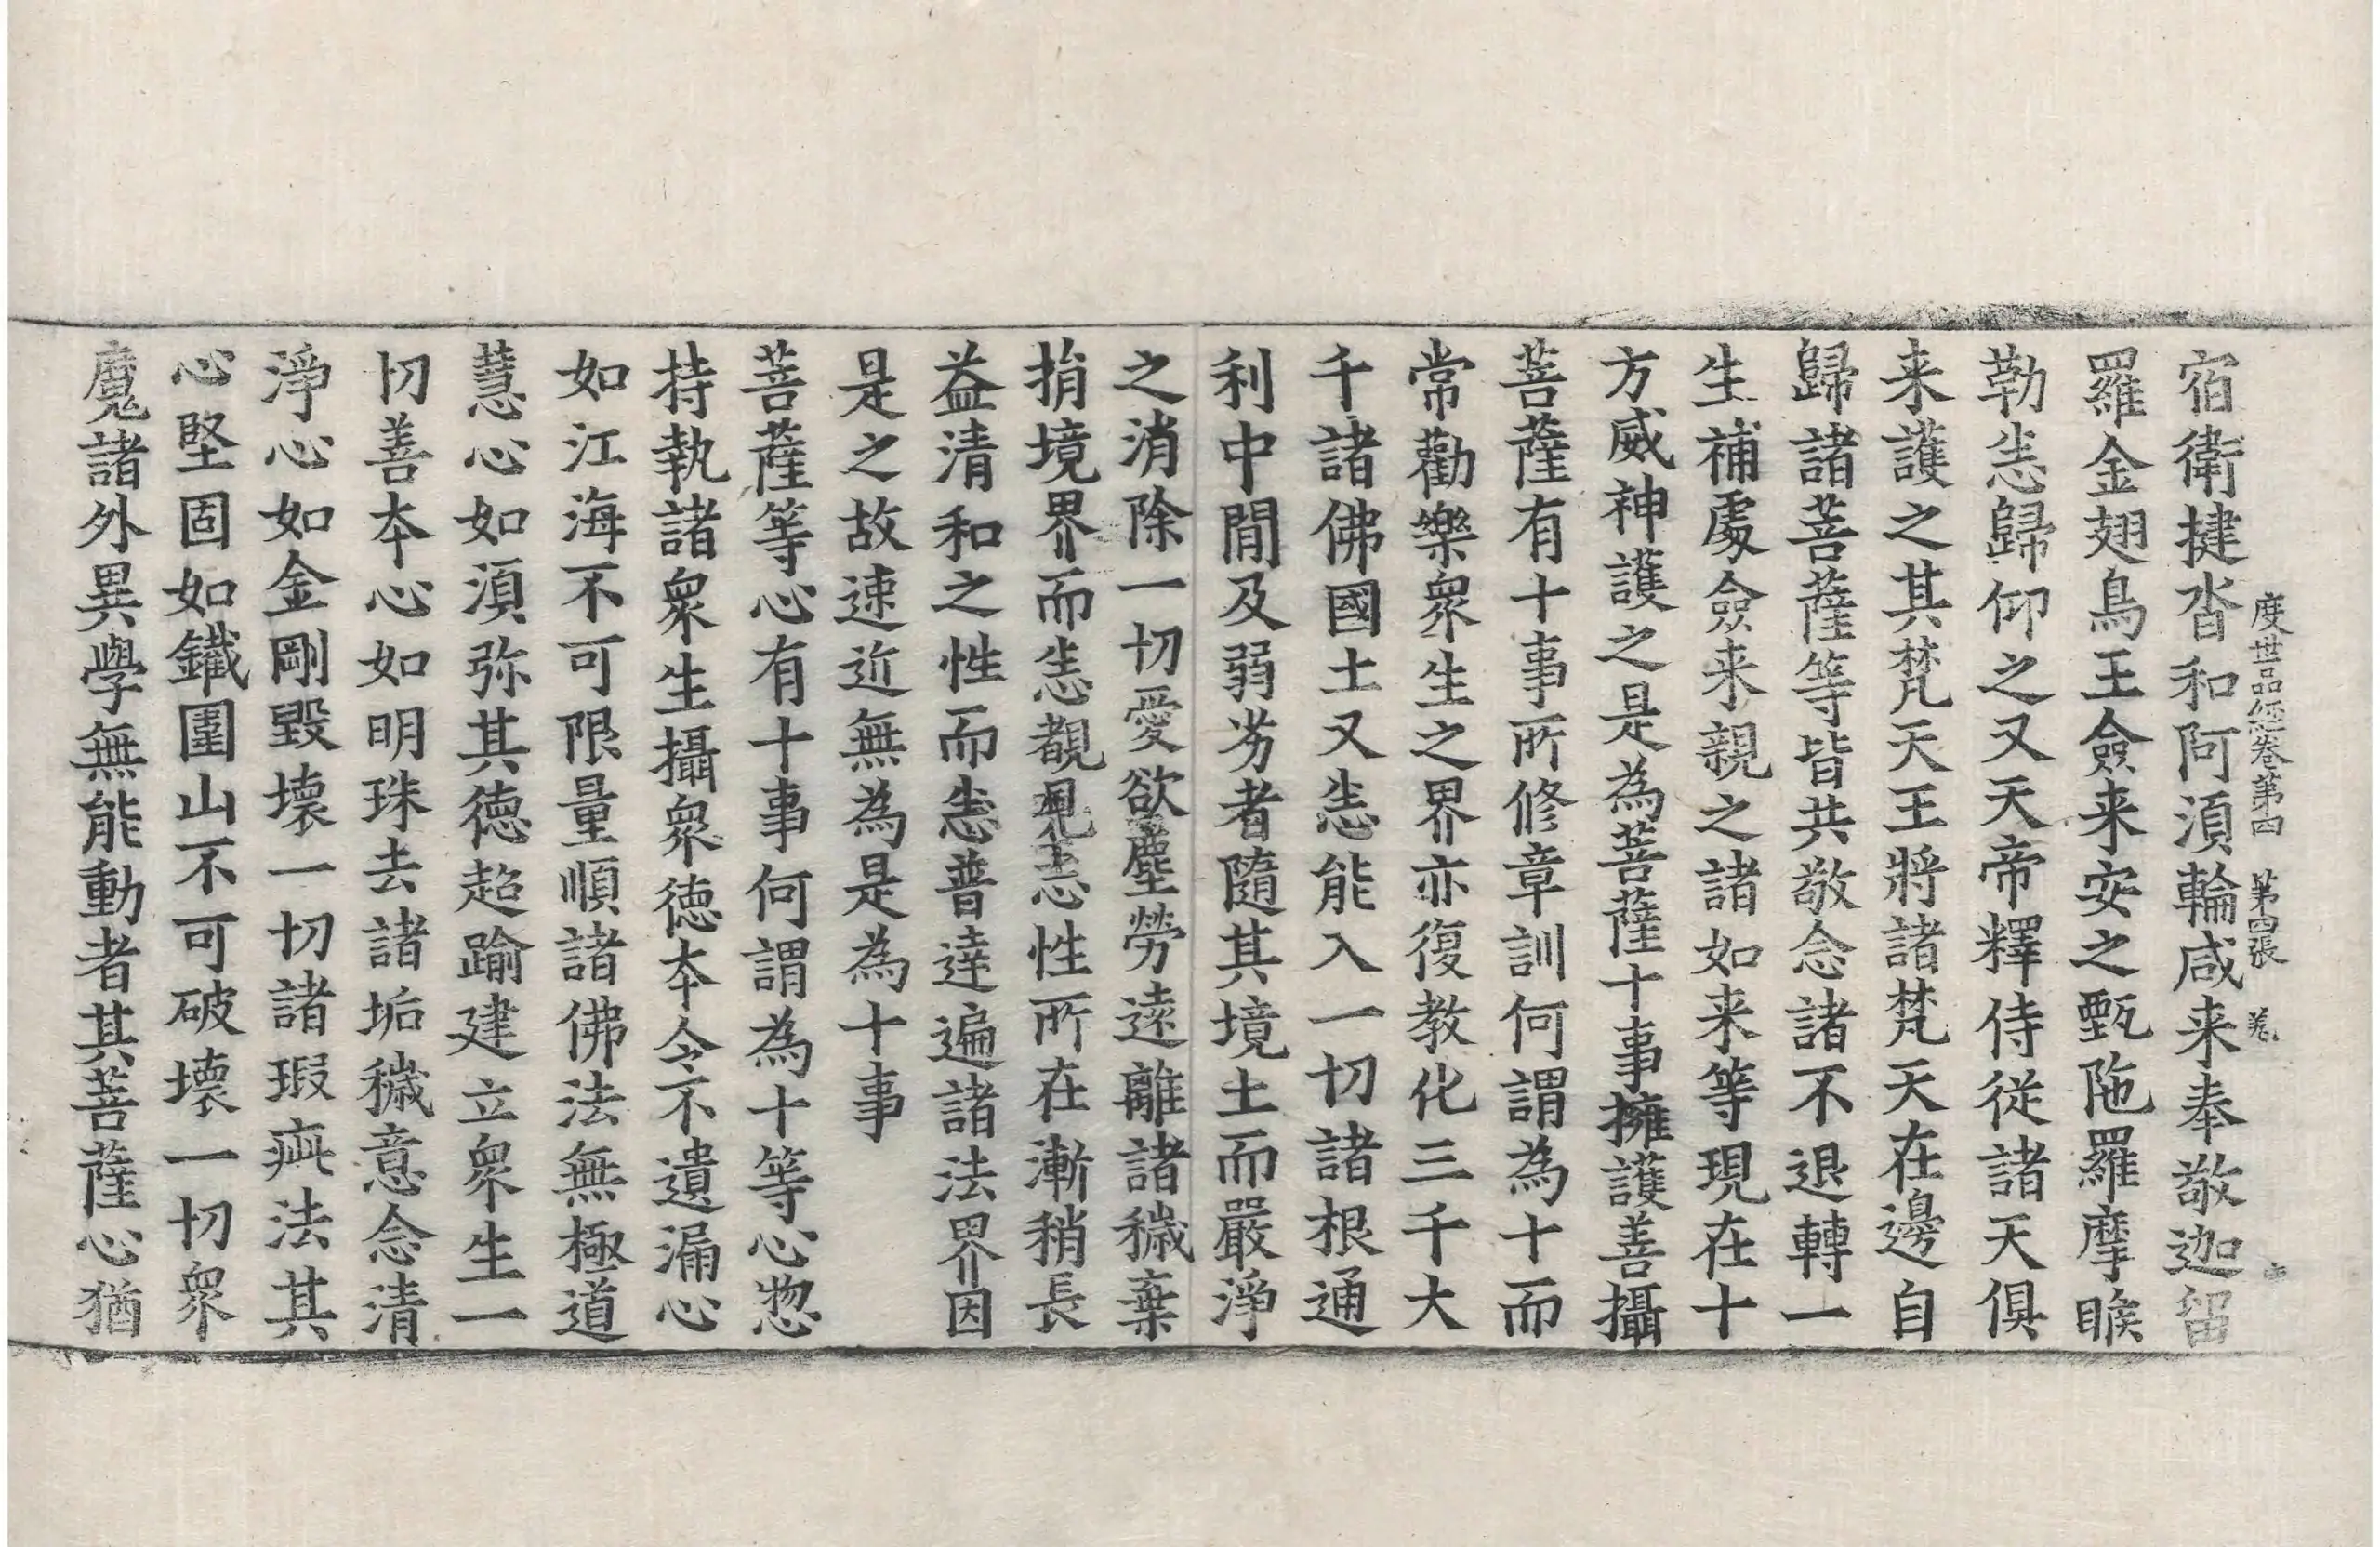 度世品經卷第四　第四張
宿衛揵沓和阿須輪咸来奉敬迦留
羅金翅鳥王僉来安之甄陁羅摩睺
勒㤙歸仰之又天帝釋侍從諸天俱
来護之其梵天王將諸梵天在邊自
歸諸菩薩等皆共敬念諸不退轉一
生補處僉来親之諸如来等現在十
方威神護之是為菩薩十事擁護善攝
菩薩有十事所修章訓何謂為十而
常勸樂衆生之界亦復教化三千大
千諸佛國土又㤙能入一切諸根通
利中閒及弱劣者隨其境土而嚴淨
之消除一切愛欲塵勞逺離諸穢棄
捐境界而㤙覩見志性所在漸稍長
益清和之性而㤙普達遍諸法界因
是之故速近無為是為十事
菩薩等心有十事何謂為十等心惣
持執諸衆生攝衆德本令不遺漏心
如江海不可限量順諸佛法無極道
慧心如須弥其德超踰建立衆生一
切善本心如明珠去諸垢穢意念清
淨心如金剛毀壞一切諸瑕疵法其
心堅固如鐵圍山不可破壞一切衆
魔諸外異學無能動者其菩薩心猶